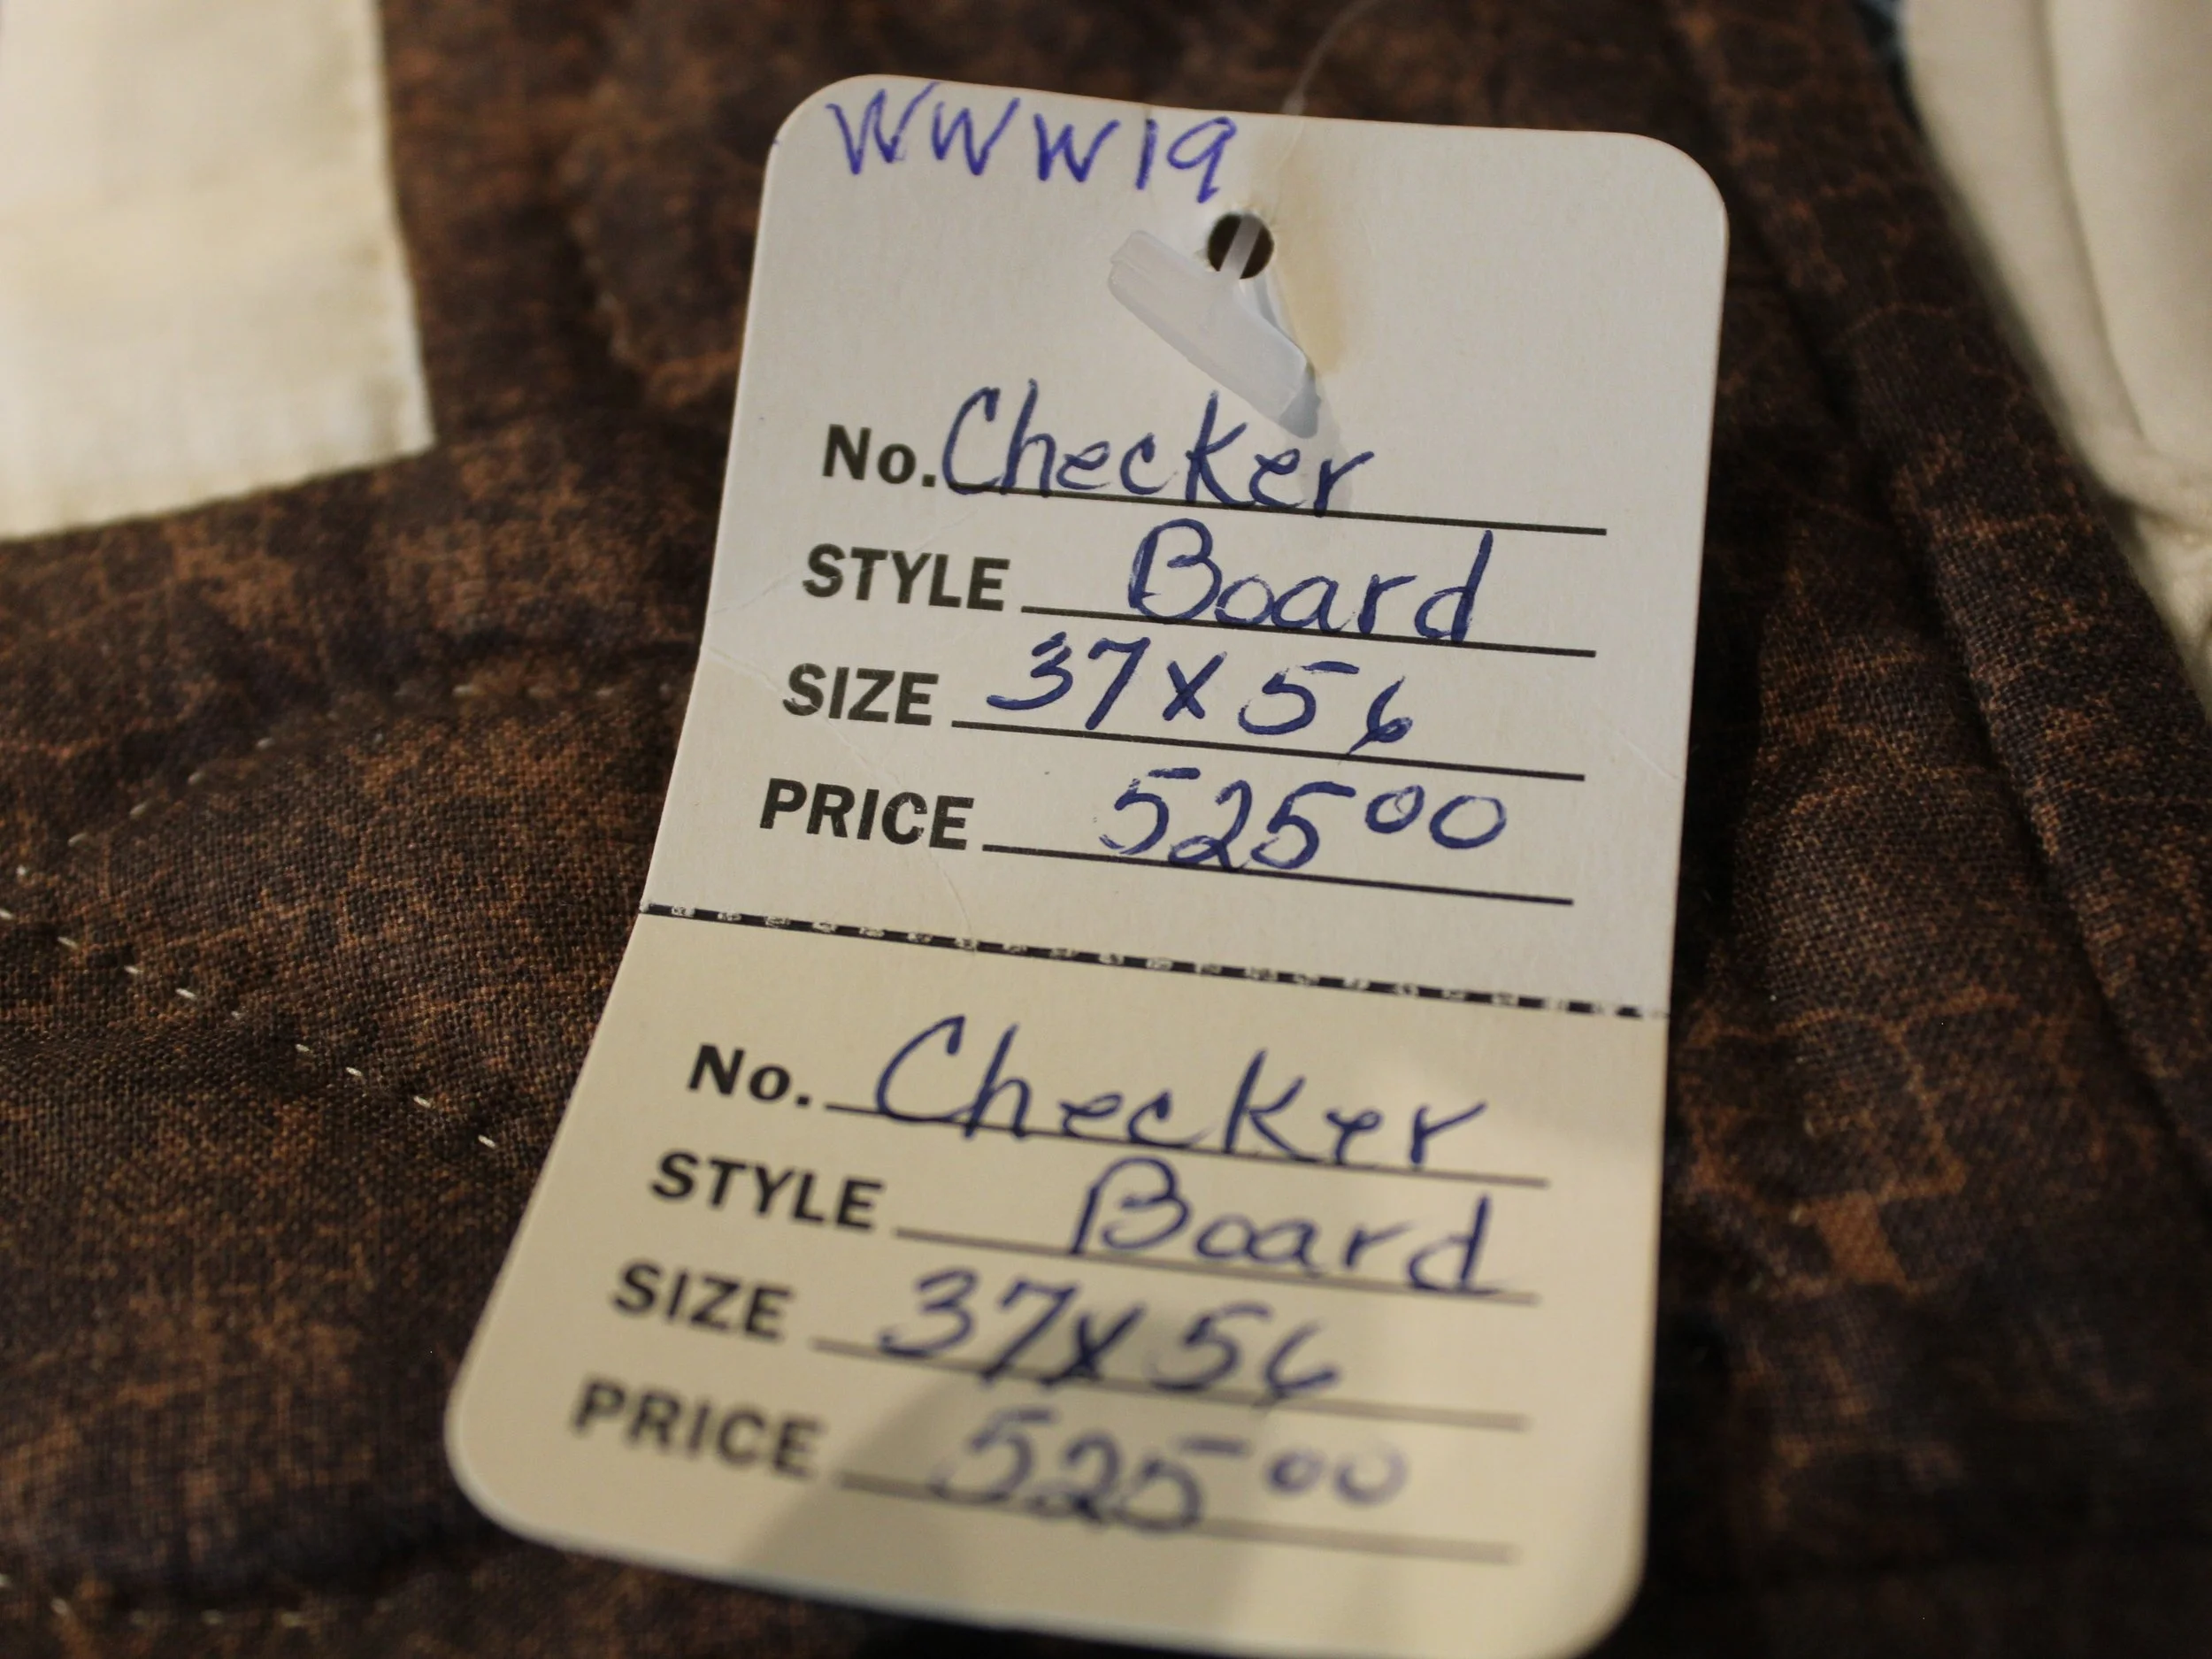 WWW19
No. Checker
STYLE Board
SIZE 37x56
PRICE 525 00
No. Checker
STYLE Board
SIZE 37x56
PRICE 525 00